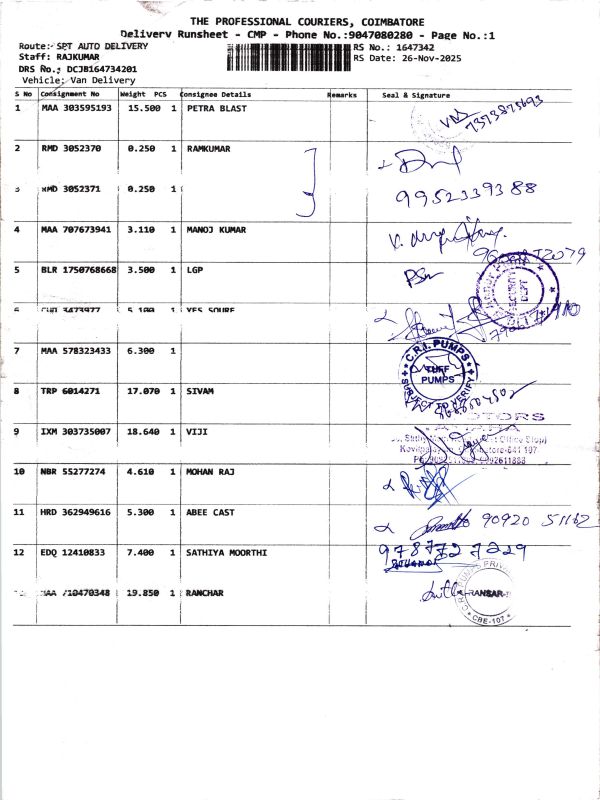 THE PROFESSIONAL COURIERS, COIMBATORE
Delivery Runsheet - CMP - Phone No.:9047080280 - Page No.:1
Route: SPT AUTO DELIVERY
RS No.: 1647342
Staff: RAJKUMAR
RS Date: 26-Nov-2025
DRS No.: DCJB164734201
Vehicle: Van Delivery
S No Consignment No Weight PCS Consignee Details Remarks Seal & Signature
1 MAA 303595193 15.500 1 PETRA BLAST 7373875693
2 RMD 3052370 0.250 1 RAMKUMAR
3 RMD 3052371 0.250 1 9952339388
4 MAA 707673941 3.110 1 MANOJ KUMAR
5 BLR 1750768668 3.500 1 LGP
SECURITY DEPT
6 3473977 5.100 1
7 MAA 578323433 6.300 1
C.R.I. PUMPS
TUFF PUMPS
SUBJECT TO VERIFY
8 TRP 6014271 17.070 1 SIVAM
9 IXM 303735007 18.640 1 VIJI
10 NBR 55277274 4.610 1 MOHAN RAJ
11 HRD 362949616 5.300 1 ABEE CAST 90920 51162
12 EDQ 12410833 7.400 1 SATHIYA MOORTHI 9787727229
MAA 710470348 19.850 1 RANCHAR
CBE-107